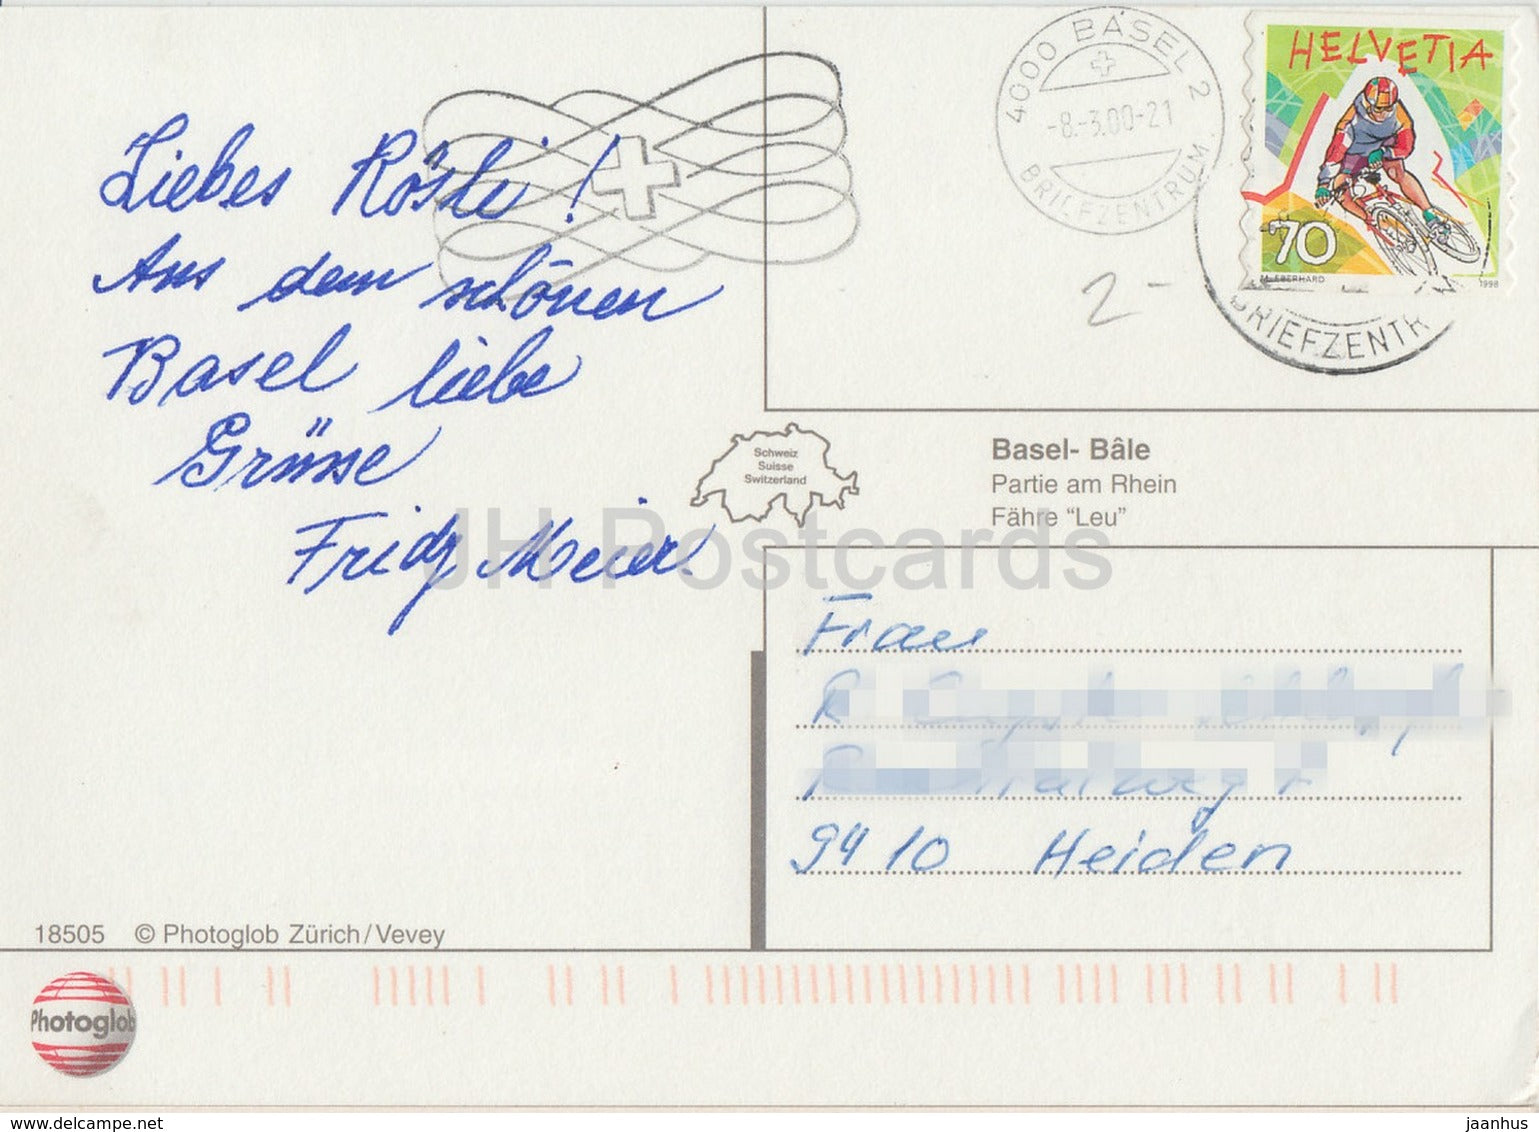 Liebes Rösli!
Aus dem schönen
Basel liebe
Grüsse
Fridy Meier.
4000 BASEL 2
-8.-3.00-21
BRIEFZENTRUM
HELVETIA
70
M. EBERHARD 1998
BRIEFZENTR M
2-
Schweiz
Suisse
Switzerland
Basel- Bâle
Partie am Rhein
Fähre "Leu"
JH Postcards
Frau
R
9410 Heiden
18505 © Photoglob Zürich/Vevey
Photoglob
www.delcampe.net
jaanhus